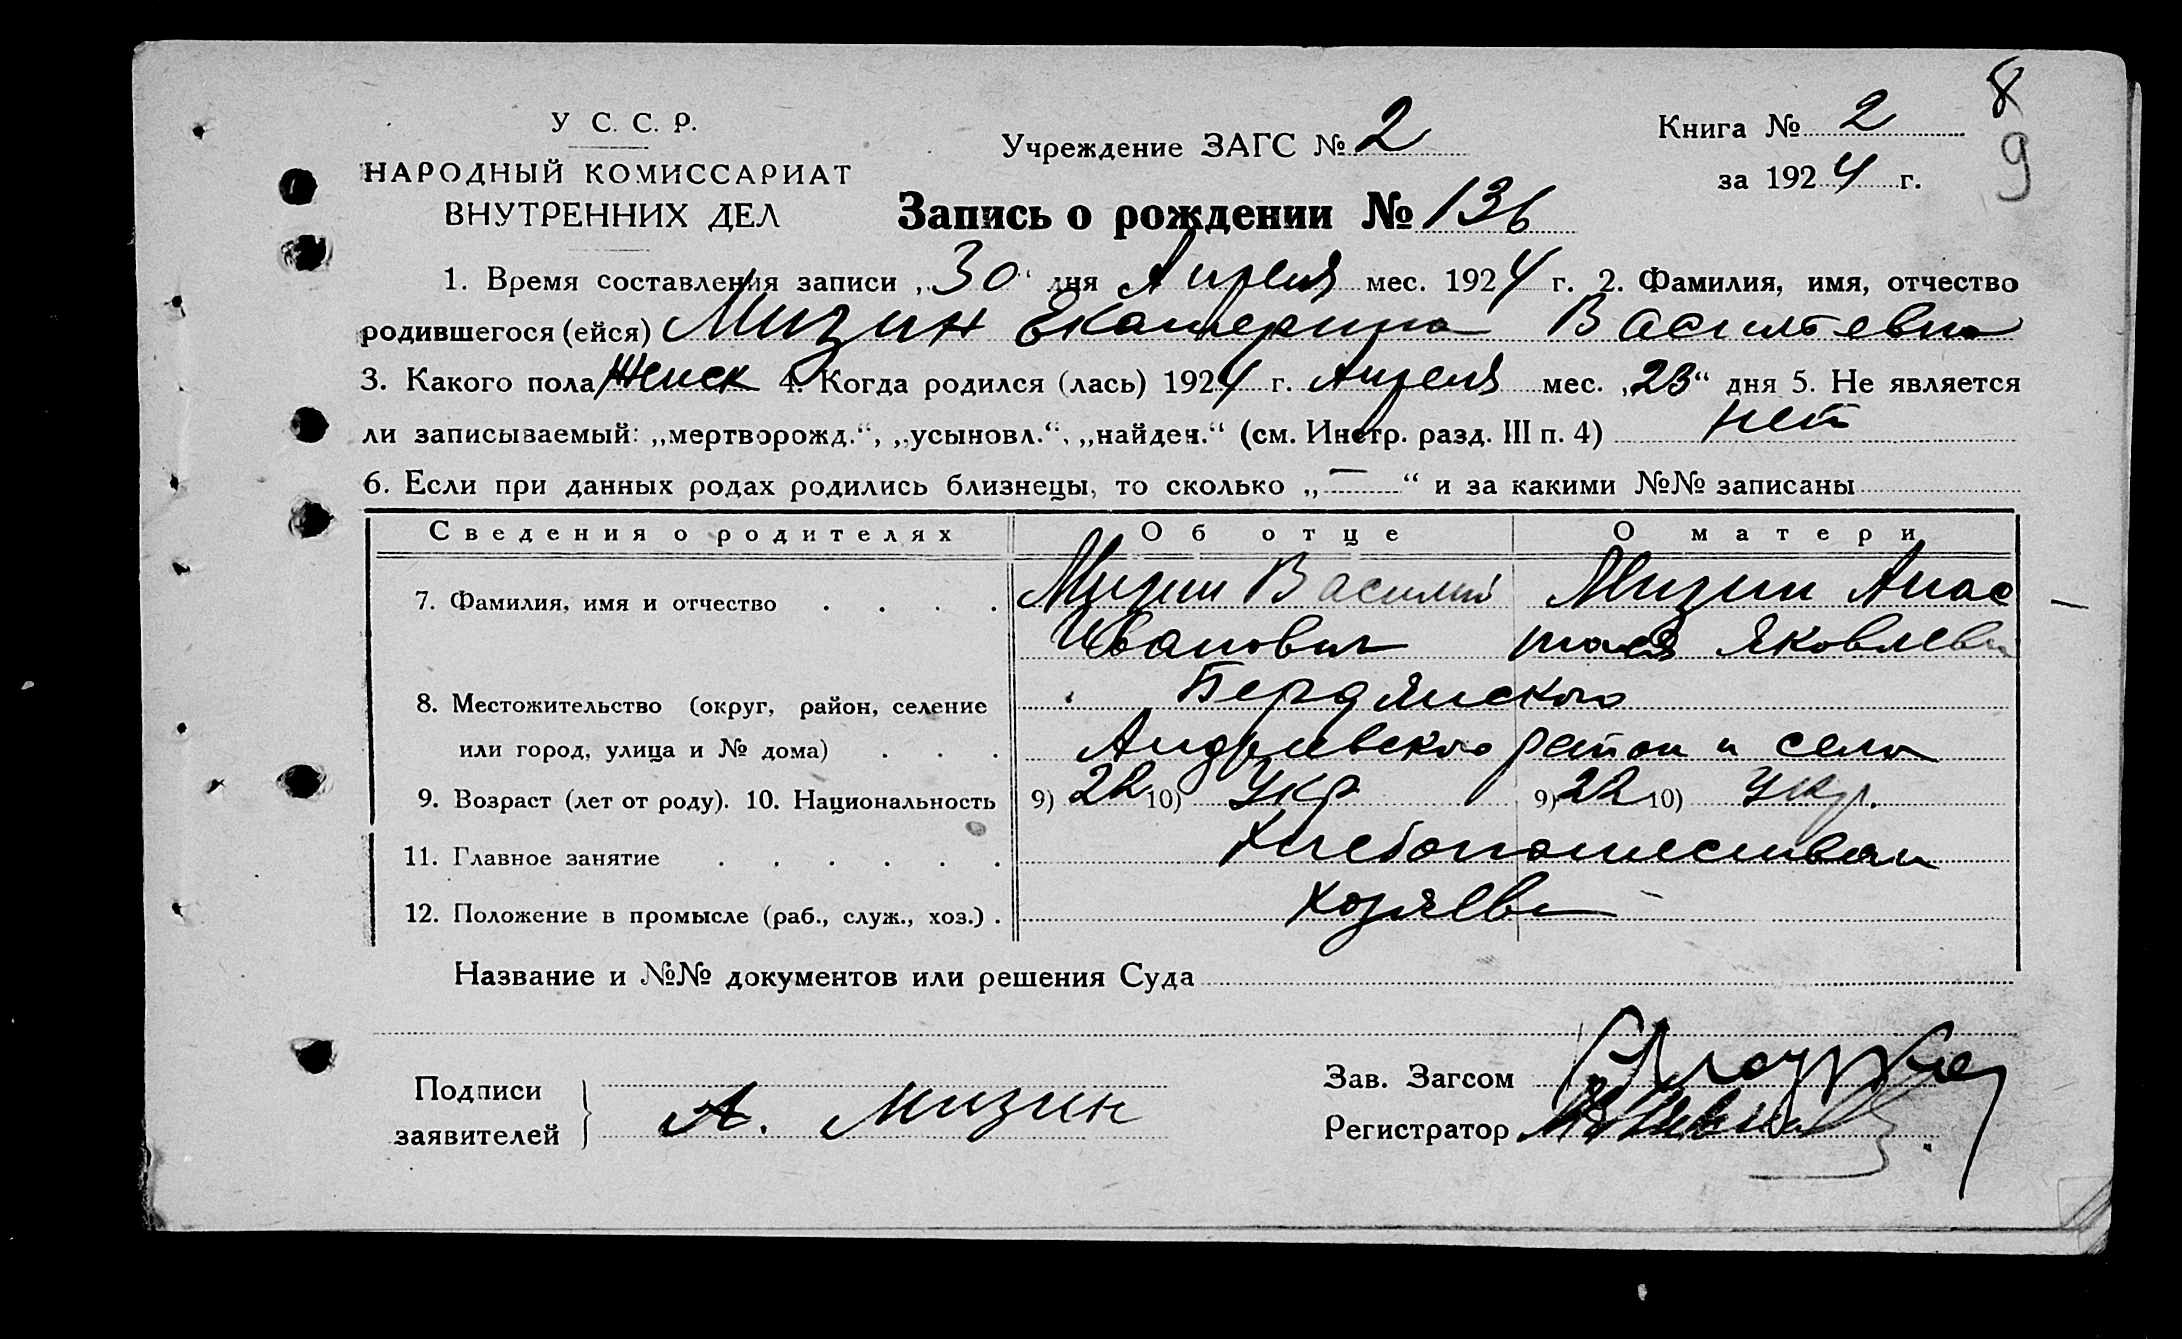 8
У С. С. Р.
Учреждение ЗАГС № 2
Книга № 2
9
НАРОДНЫЙ КОМИССАРИАТ
за 1924 г.
ВНУТРЕННИХ ДЕЛ
Запись о рождении № 136
1. Время составления записи „30“ дня Апреля мес. 1924 г. 2. Фамилия, имя, отчество
родившегося (ейся) Мизин Екатерина Васильевна
3. Какого пола Женск 4. Когда родился (лась) 1924 г. Апреля мес. „23“ дня 5. Не является
ли записываемый: „мертворожд.“, „усыновл.“, „найден.“ (см. Инстр. разд. III п. 4) нет
6. Если при данных родах родились близнецы, то сколько „—“ и за какими №№ записаны
Сведения о родителях Об отце О матери
7. Фамилия, имя и отчество Мизин Василий Мизин Анас
Иванович тасия Яковлевн
8. Местожительство (округ, район, селение Бердянского
или город, улица и № дома) Андреевского район и село
9. Возраст (лет от роду). 10. Национальность 9) 22 10) Укр 9) 22 10) Укр.
11. Главное занятие Хлебопашеством
12. Положение в промысле (раб., служ., хоз.) Хозяева
Название и №№ документов или решения Суда
Подписи
заявителей } А. Мизин
Зав. Загсом
Регистратор